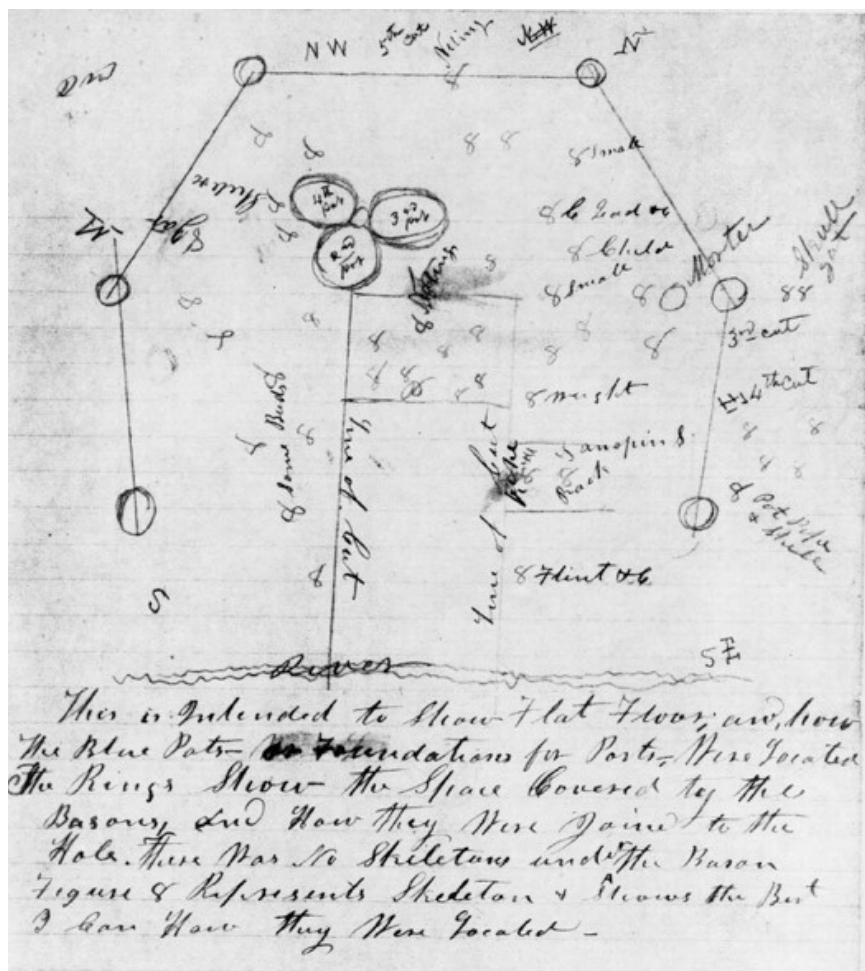 NW 5th Cut
N
8 Small
4th pot
3rd pot
2nd pot
8 Child
8 Small
Skull
88
3rd cut
4th cut
8 Weight
8 Some Beads
Line of Cut
Line of Cut
Pipe
Rack
8 Pot Pipe
& Skull
8 Flint & C
S
SE
River
This is Intended to Show Flat Floor, and how
The Blue Pots - or Foundations for Posts - Were Located
The Rings Show the Space Covered by the
Basons, and How they Were Joined to the
Hole. There Was No Skeletons under The Bason
Figure 8 Represents Skeleton & Shows the Best
I Can How they Were Located -